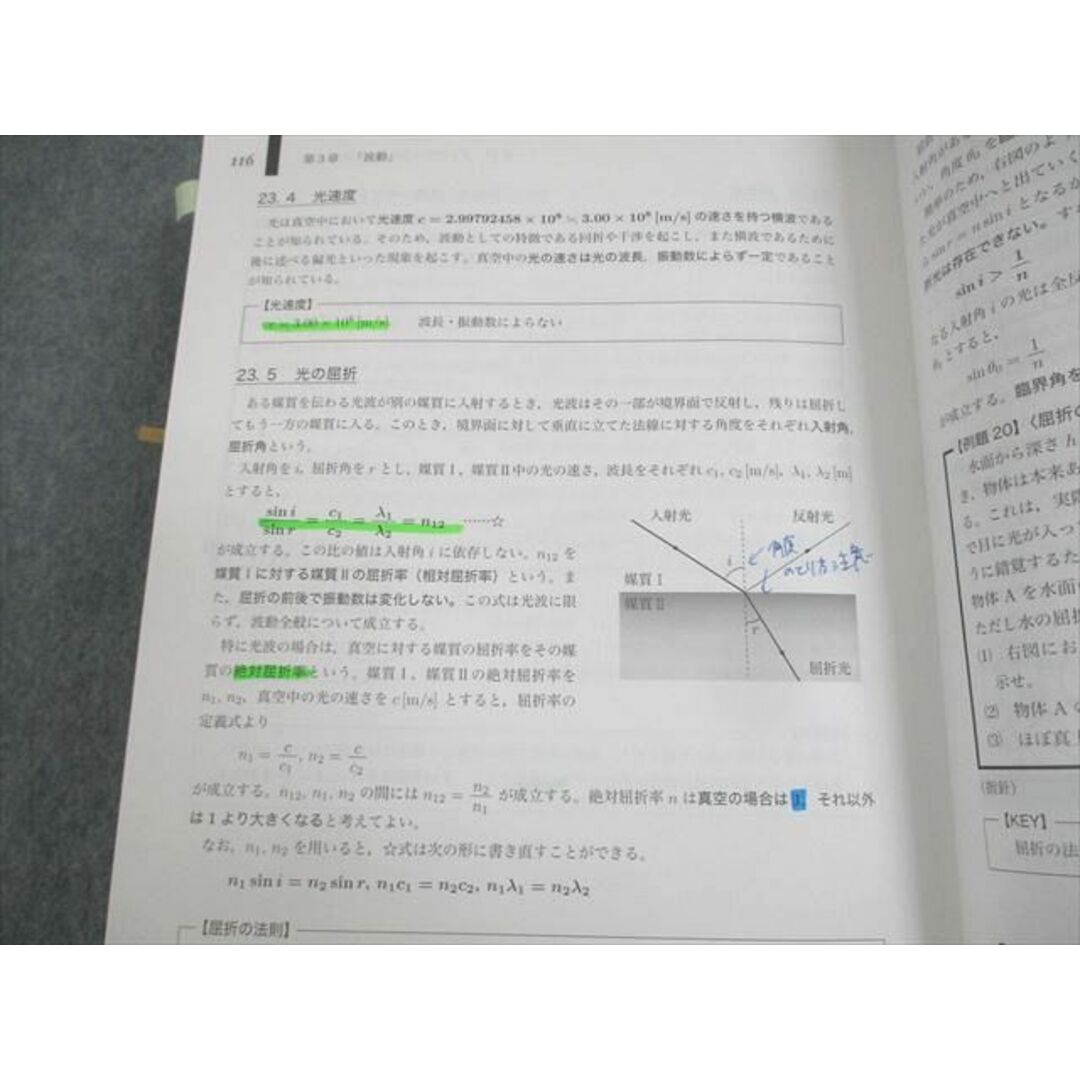 116 第3章 「波動」
23. 4 光速度
光は真空中において光速度 c = 2.99792458 × 10⁸ ≒ 3.00 × 10⁸ [m/s] の速さを持つ横波である
ことが知られている。そのため，波動としての特徴である回折や干渉を起こし，また横波であるために
後に述べる偏光といった現象を起こす。真空中の光の速さは光の波長，振動数によらず一定であること
が知られている。
【光速度】
c = 3.00 × 10⁸ [m/s] 波長・振動数によらない
23. 5 光の屈折
ある媒質を伝わる光波が別の媒質に入射するとき，光波はその一部が境界面で反射し，残りは屈折し
てもう一方の媒質に入る。このとき，境界面に対して垂直に立てた法線に対する角度をそれぞれ入射角，
屈折角という。
入射角を i，屈折角を r とし，媒質Ⅰ，媒質Ⅱ中の光の速さ，波長をそれぞれ c₁, c₂ [m/s], λ₁, λ₂ [m]
とすると，
sin i / sin r = c₁ / c₂ = λ₁ / λ₂ = n₁₂ ……☆
が成立する。この比の値は入射角 i に依存しない。n₁₂ を
媒質Ⅰに対する媒質Ⅱの屈折率（相対屈折率）という。ま
た，屈折の前後で振動数は変化しない。この式は光波に限
らず，波動全般について成立する。
特に光波の場合は，真空に対する媒質の屈折率をその媒
質の絶対屈折率という。媒質Ⅰ，媒質Ⅱの絶対屈折率を
n₁, n₂，真空中の光の速さを c [m/s] とすると，屈折率の
定義式より
n₁ = c / c₁, n₂ = c / c₂
が成立する。n₁₂, n₁, n₂ の間には n₁₂ = n₂ / n₁ が成立する。絶対屈折率 n は真空の場合は 1，それ以外
は 1 より大きくなると考えてよい。
なお，n₁, n₂ を用いると，☆式は次の形に書き直すことができる。
n₁ sin i = n₂ sin r, n₁c₁ = n₂c₂, n₁λ₁ = n₂λ₂
【屈折の法則】
入射光 反射光
i 角度
のとり方注意
媒質Ⅰ
媒質Ⅱ
r
屈折光
sin i > 1 / n
なる入射角 i の光は全反
θ₀ とすると，
sin θ₀ = 1 / n
が成立する。臨界角を
【例題 20】〈屈折の
水面から深さ h
き，物体は本来あ
る。これは，実際
で目に光が入っ
うに錯覚するた
物体 A を水面
ただし水の屈折
(1) 右図にお
示せ。
(2) 物体 A の
(3) ほぼ真上
(指針)
【KEY】
屈折の法